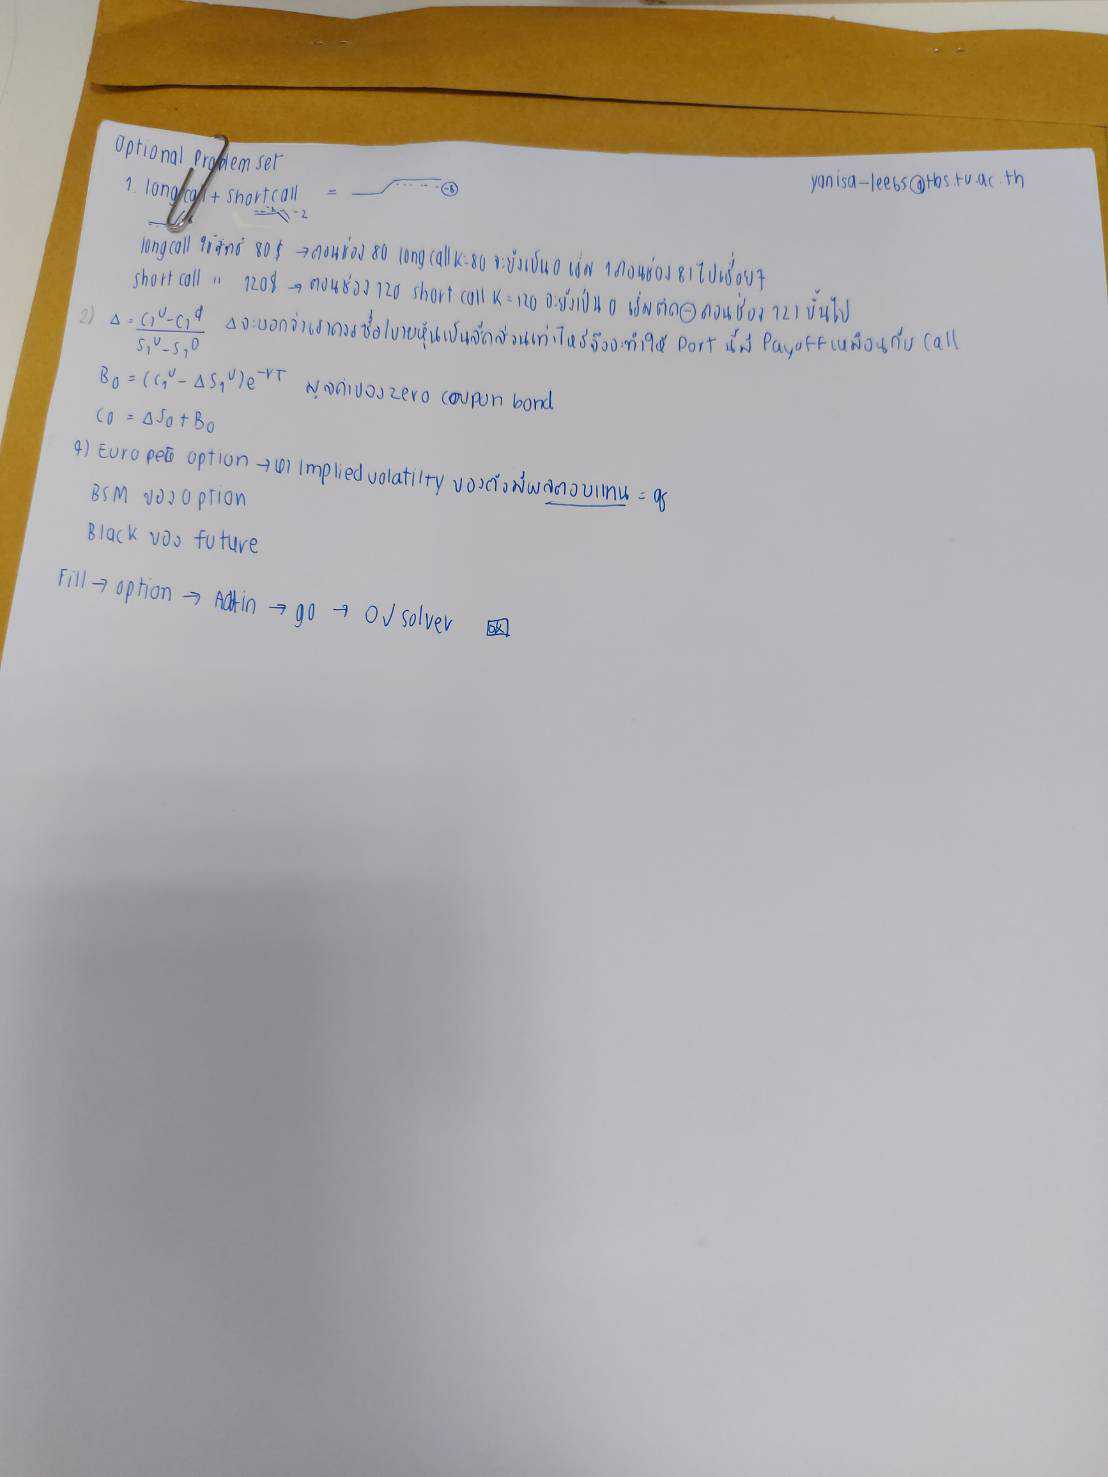 Optional Problem set
yanisa-lee65@tbs.tu.ac.th
1. long call + short call =
long call ใช้สิทธิ์ 80$ → ตอนช่อง 80 long call K=80 จะยังเป็น 0 เริ่ม 1 ตอนช่อง 81 ไปเรื่อยๆ
short call " 120$ → ตอนช่อง 120 short call K=120 จะยังเป็น 0 เริ่มติด ⊖ ตอนช่อง 121 ขึ้นไป
2) Δ = (C₁ᵁ-C₁ᵈ)/(S₁ᵁ-S₁ᴰ) Δ จะบอกว่าเราควรซื้อ/ขายหุ้นเป็นสัดส่วนเท่าไหร่จึงจะทำให้ Port นี้มี Payoff เหมือนกับ call
B₀ = (C₁ᵁ - ΔS₁ᵁ)e^-rT มูลค่าของ zero coupon bond
C₀ = ΔS₀ + B₀
4) option → หา implied volatilty ของตัวมีผลตอบแทน =
BSM ของ option
Black ของ future
Fill → option → → go → O√ solver OK